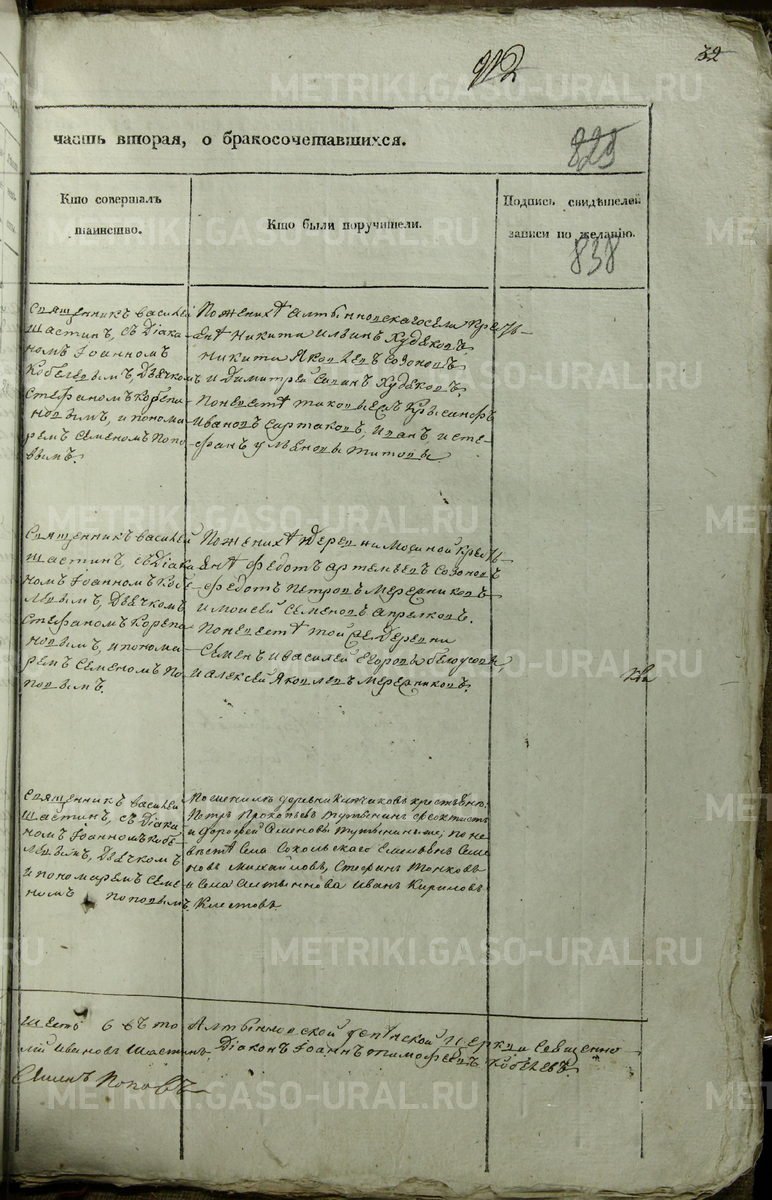 912
32
часть вторая, о бракосочетавшихся.
829
Кто совершалъ
таинство.
Кто были поручители.
Подпись свидѣтелей
записи по желанію.
838
Священникъ василей
Шастин, съ Діако
номъ Іоанномъ
Кобелевымъ, Дьячкомъ
Стефаномъ Корепа
новымъ, и понома
ремъ Семеномъ Попо
вымъ.
По женихѣ алтынновскаго села кресть
янѣ Никита Ильинъ Худяковъ,
Никита Яковлевъ Созоновъ
и Димитрей Саванъ Худяковъ.
По невестѣ таковыежъ Крысанфъ
Ивановъ Сартаковъ, Иванъ, и сте
фанъ ульяновы титовы
Священникъ василей
Шастин, съ Діако
номъ Іоанномъ Кобе
левымъ, Дьячкомъ
Стефаномъ Корепа
новымъ, и понома
ремъ Семеномъ По
повымъ.
По женихѣ Деревни Мосиной кресть
янѣ федотъ артемьевъ Созоновъ
федотъ Петровъ Мережниковъ
и моисей Семеновъ апрелковъ.
По невестѣ той же Деревни
Семенъ и василей Егоровы белоусовы,
и алексей Яковлевъ Мережниковъ.
два
Священникъ василей
Шастин, съ Діако
номъ Іоанномъ Кобе
левымъ, Дьячкомъ
и пономаремъ Семе
номъ Поповымъ.
По женихѣ деревни Кипчаковъ крестьяне
Петръ Прокопьевъ Тутынинъ феоктистъ
и Дорофей Семеновы Тутынины; по не
вестѣ Села Сокольскаго Емельянъ Семе
новъ Михайловъ, Стефанъ Тонковъ
и села Алтыннова Иванъ Кириловъ
Клестовъ
Шесть 6 въ то Алтынновской успѣнской церкви Священно
лій Ивановъ Шастинъ. Діаконъ Іоаннъ тимофеевъ Кобелевъ.
Семенъ Поповъ
METRIKI.GASO-URAL.RU